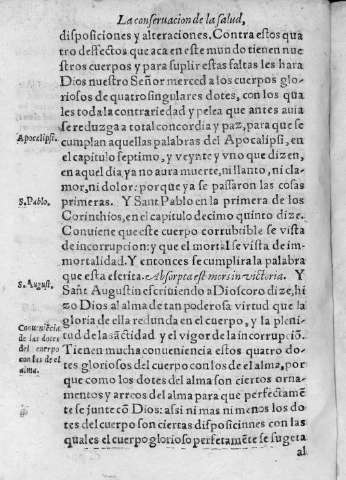 La conseruacion de la salud,
disposiciones y alteraciones. Contra estos qua
tro deffectos que aca en este mundo tienen nue
stros cuerpos y para suplir estas faltas les hara
Dios nuestro Señor merced a los cuerpos glo-
riosos de quatro singulares dotes, con los qua
les toda la contrariedad y pelea que antes auia
se reduzga a total concordia y paz, para que se
Apocalipsi.
cumplan aquellas palabras del Apocalipsi, en
el capitulo septimo, y veynte y vno que dizen,
en aquel dia ya no aura muerte, ni llanto, ni cla-
mor, ni dolor: porque ya se passaron las cosas
S. Pablo.
primeras. Y Sant Pablo en la primera de los
Corinthios, en el capitulo decimo quinto dize.
Conuiene que este cuerpo corrubtible se vista
de incorrupcion: y que el mortal se vista de im-
mortalidad. Y entonces se cumplira la palabra
que esta escrita. Absorpta est mors in victoria. Y
S. August.
Sant Augustin escriuiendo a Dioscoro dize, hi
zo Dios al alma de tan poderosa virtud que la
gloria de ella redunda en el cuerpo, y la pleni-
Conueniẽcia
de las dotes
del cuerpo
con las de el
alma.
tud de la sãctidad y el vigor de la incorrupciõ.
Tienen mucha conueniencia estos quatro do-
tes gloriosos del cuerpo con los de el alma, por
que como los dotes del alma son ciertos orna-
mentos y arreos del alma para que perfectamẽ
te se juntecõ Dios: assi ni mas ni menos los do
tes del cuerpo son ciertas disposicinnes con las
quales el cuerpo glorioso perfetamẽte se sugeta
al